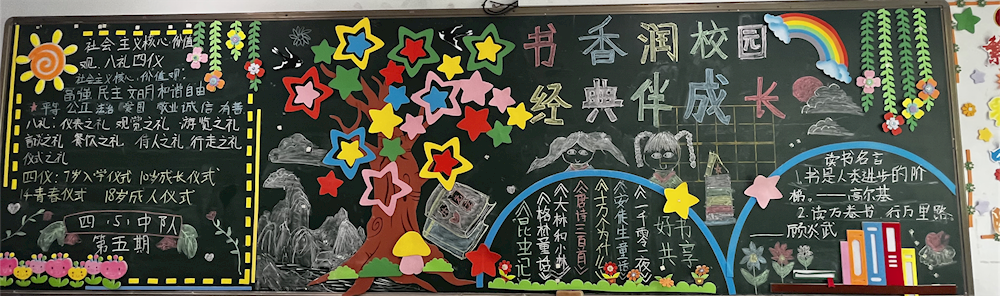 社会主义核心价值
观、八礼四仪
社会主义核心价值观:
富强 民主 文明 和谐 自由
平等 公正 法治 爱国 敬业 诚信 友善
八礼:仪表之礼 观赏之礼 游览之礼
餐饮之礼 待人之礼 行走之礼
仪式之礼
四仪:7岁入学仪式 10岁成长仪式
14青春仪式 18岁成人仪式
四(5)中队
第五期
书香润校园
经典伴成长
《昆虫记》
《格林童话》
《大林和小林》
《唐诗三百首》
《十万个为什么》
《安徒生童话》
《一千零一夜》
好书
共享
读书名言
1.书是人类进步的阶
梯。——高尔基
2.读万卷书 行万里路
——顾炎武